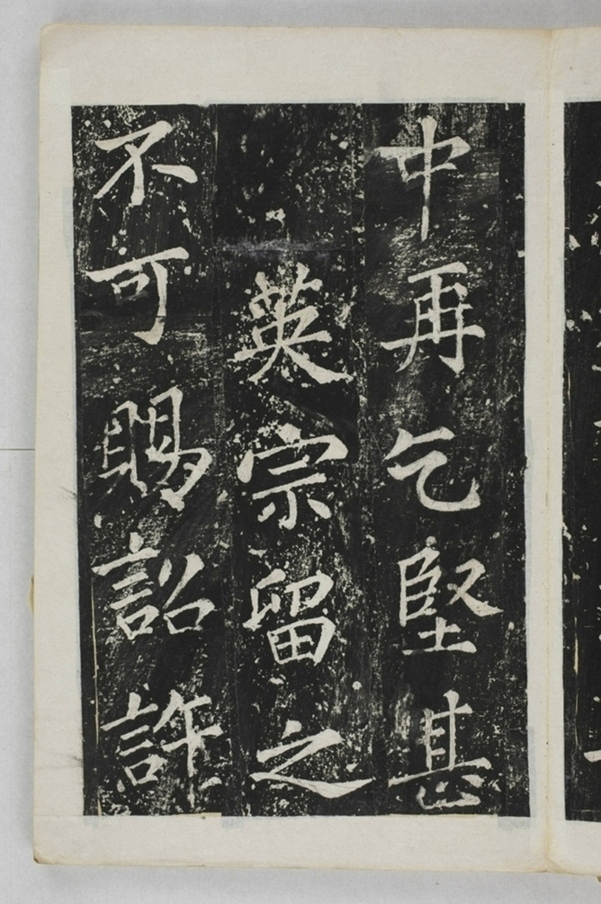 中再乞堅甚
英宗留之
不可賜詔許